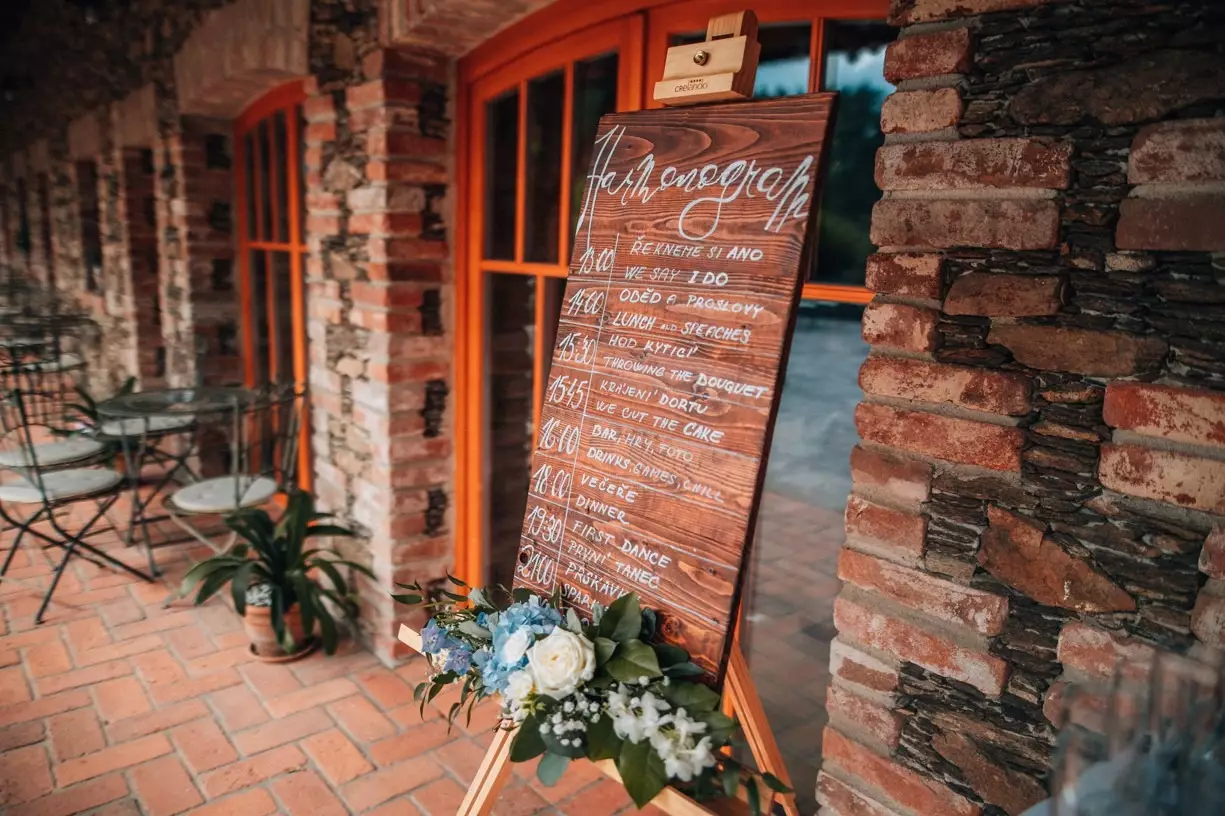 CReLando
Harmonogram
13:00 ŘEKNEME SI ANO
WE SAY I DO
14:00 OBĚD A PROSLOVY
LUNCH AND SPEECHES
15:30 HOD KYTICÍ
THROWING THE BOUQUET
15:45 KRÁJENÍ DORTU
WE CUT THE CAKE
16:00 BAR, HRY, FOTO
DRINKS, GAMES, CHILL
18:00 VEČEŘE
DINNER
19:30 FIRST DANCE
PRVNÍ TANEC
21:00 PRSKAVKY
SPAR